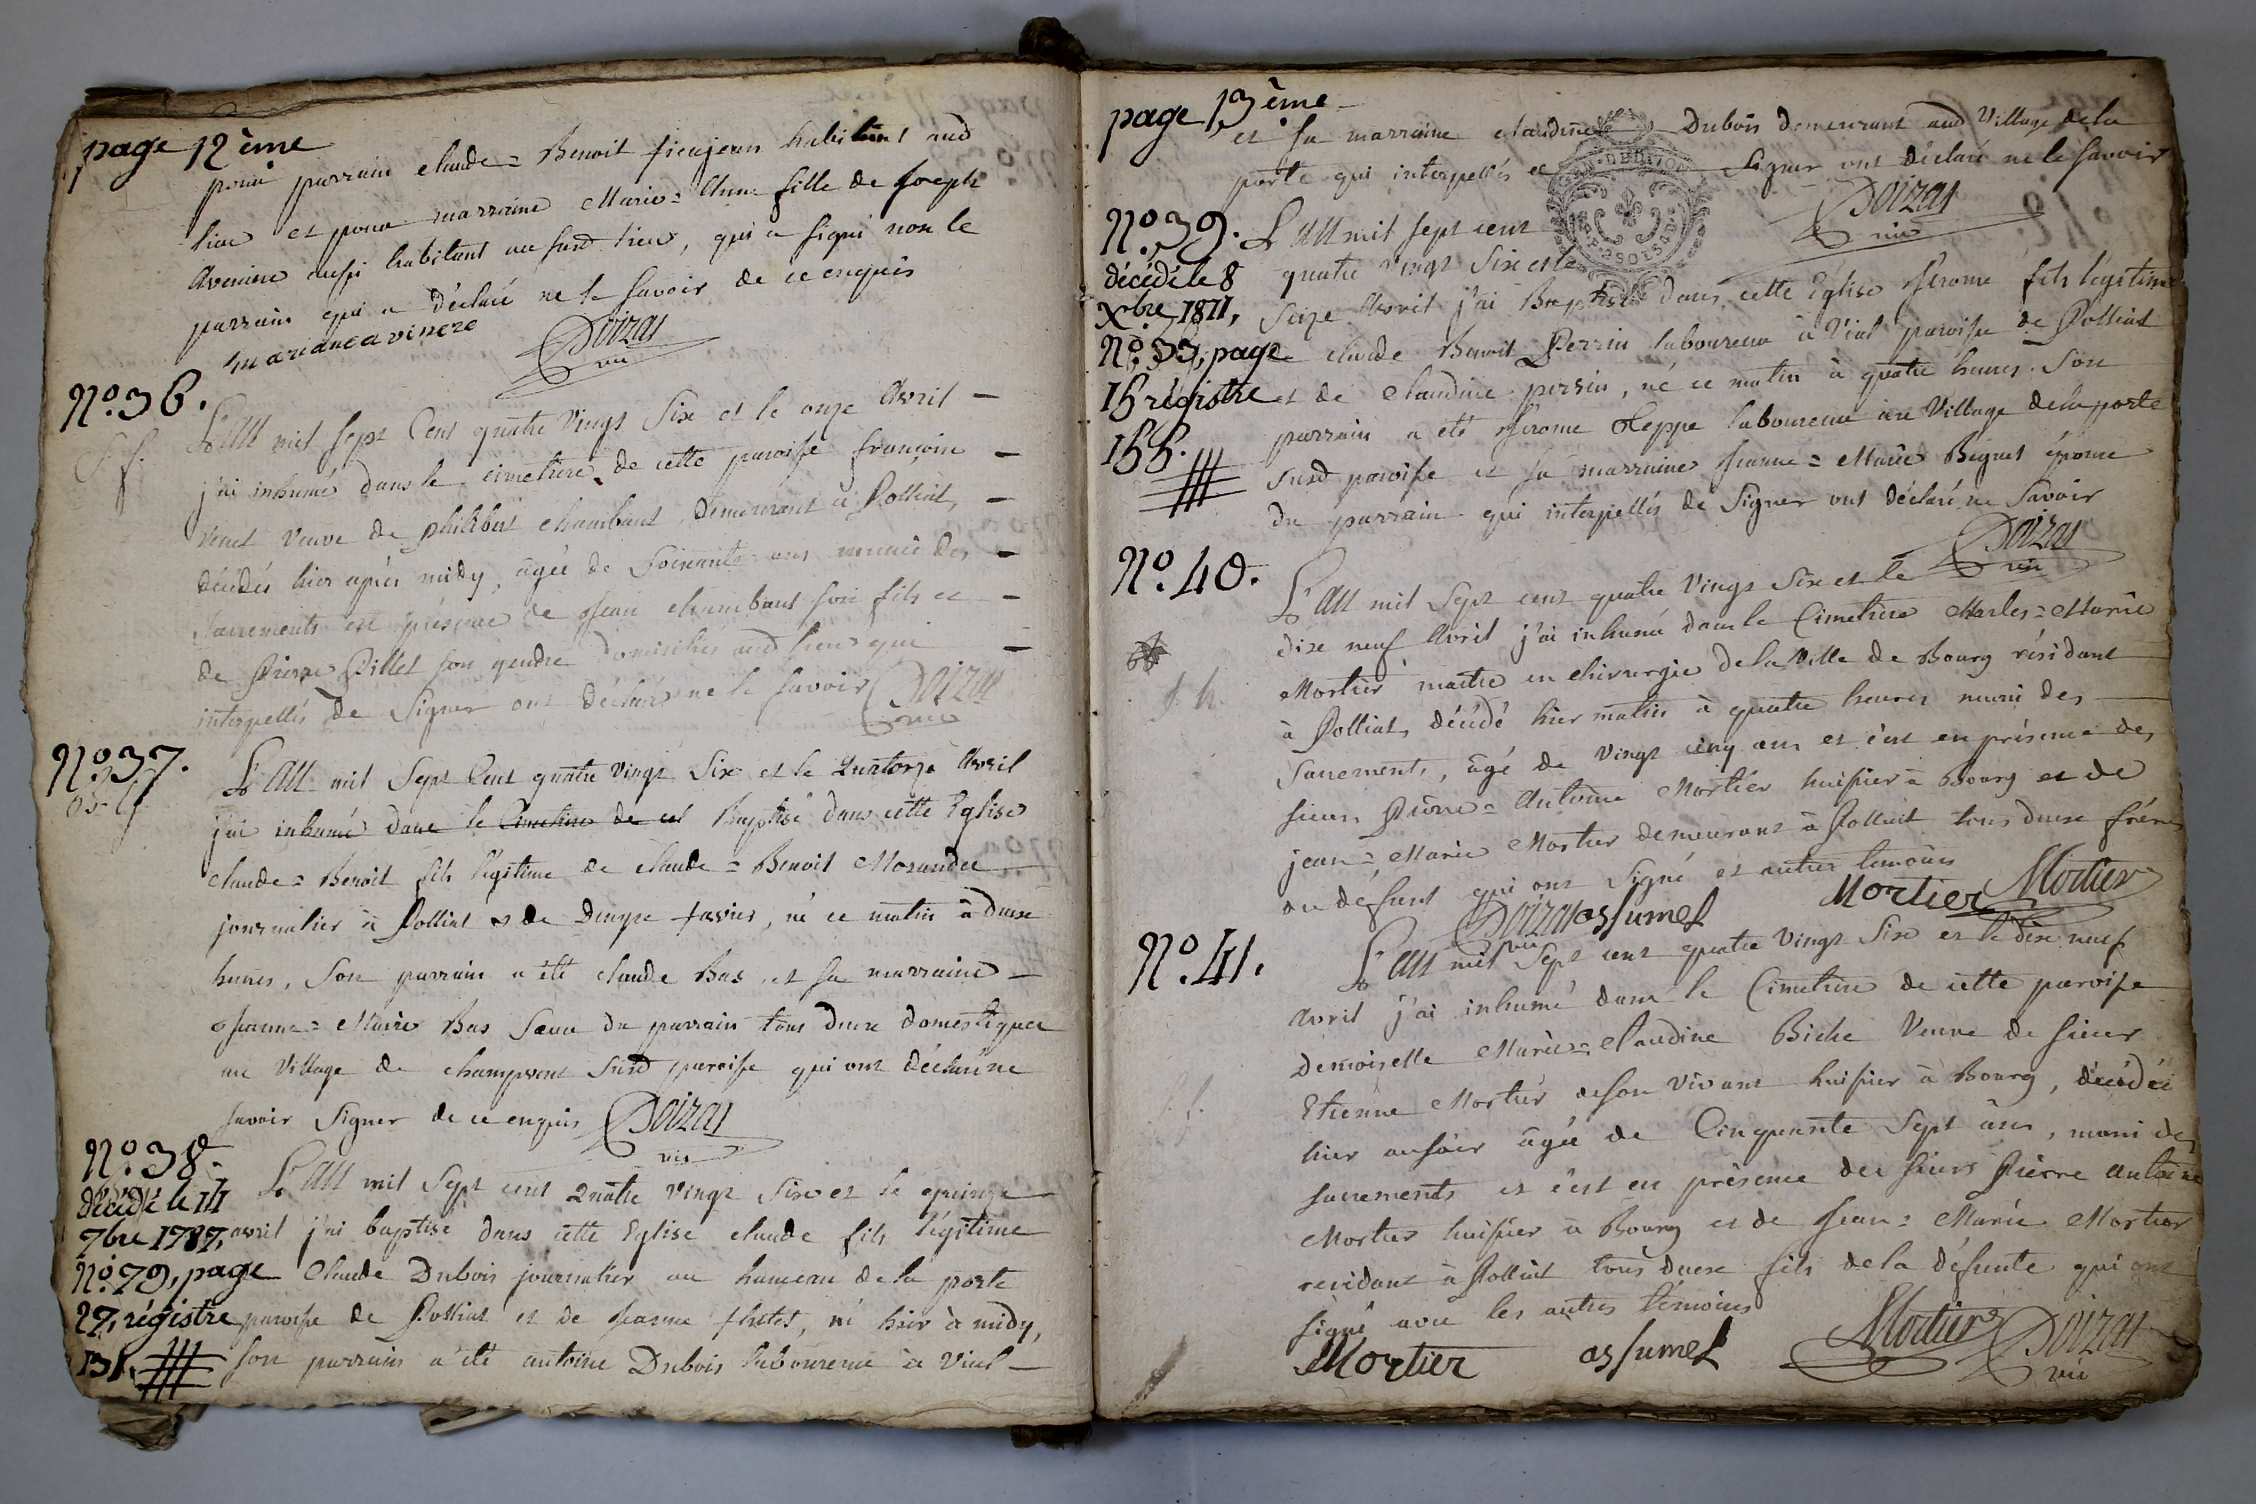 page 12ème
pour parrain claude = Benoit habitant aud
lieu et pour marraine Marie = Anne fille de Joseph
Avenine aussi habitant au susd lieu, qui a signé non le
parrain qui a déclaré ne le savoir de ce enquis
Doizat
vic
N°. 36.
L'an mil sept Cent quatre vingt Six et le onze Avril
j'ai inhumé dans le cimetiere de cette paroisse françoise
Venet veuve de philibert chambaut demeurant à Polliat,
décédée hier après midy, âgée de Soixante ans munie des
Sacrements en présence de Jean chambaut son fils et
de Pierre Pillet son gendre domiciliés aud lieu qui
interpellés de Signer ont déclaré ne le savoir Doizat
vic
N°. 37.
L'an mil Sept Cent quatre vingt Six et le Quatorze Avril
j'ai inhumé dans le Cimetiere de cet Baptisé dans cette Eglise
claude = Benoit fils légitime de claude = Benoit Morandee
journalier à Polliat et de Denyse favier, né ce matin à deux
heures, Son parrain a été claude Bas et sa marraine
Jeanne = Marie Bas Sœur du parrain tous deux domestiques
au Village de champvent susd paroisse qui ont déclaré ne
savoir Signer de ce enquis Doizat
vic
N°. 38.
décédé le 14
7bre 1787,
N°. 79, page
27, régistre
131.
L'an mil Sept cent Quatre vingt Six et le quinze
avril j'ai baptisé dans cette Eglise claude fils légitime
Claude Dubois journalier au hameau de la poste
paroisse de Polliat et de Jeanne né hier à midy,
son parrain a été antoine Dubois laboureur à Vial
page 13ème
et sa marraine claudine Dubois demeurant aud Village de la
porte qui interpellés de Signer ont déclaré ne le savoir
Doizat
vic
N°. 39.
décédé le 8
Xbre 1811,
N°. 33, page
16 régistre
166.
L'an mil sept cent
quatre vingt Six et le
Seize Avril j'ai Baptisé dans cette Eglise Jérome fils légitime
claude Benoit Perrin laboureur à Vial paroisse de Polliat
et de Claudine perrin, né ce matin à quatre heures. Son
parrain a été Jérome Heppe laboureur au Village de la porte
susd paroisse et sa marraine Jeanne = Marie Biguet épouse
du parrain qui interpellés de Signer ont déclaré ne Savoir
Doizat
vic
N°. 40.
L'an mil Sept cent quatre vingt Six et le
dix neuf Avril j'ai inhumé dans le Cimetière Charles = Marie
Mortier maitre en chirurgie de la Ville de Bourg résidant
à Polliat, décédé hier matin à quatre heures muni des
Sacrements, âgé de vingt cinq ans et c'est en présence des
sieurs Pierre = Antoine Mortier huissier à Bourg et de
jean = Marie Mortier demeurant à Polliat tous deux frères
du défunt qui ont Signé et autres témoins
Doizat assumel Mortier Mortier
vic
N°. 41.
L'an mil Sept cent quatre vingt Six et le dix neuf
Avril j'ai inhumé dans le Cimetière de cette paroisse
Demoiselle Marie = Claudine Biche Veuve de sieur
Etienne Mortier de son vivant huissier à Bourg, décédée
hier au soir âgée de Cinquante Sept ans, muni des
sacrements et c'est en présence des sieurs Pierre antoine
Mortier huissier à Bourg et de Jean = Marie Mortier
residant à Polliat tous deux fils de la défunte qui ont
signé avec les autres témoins
Mortier assumel Mortier Doizat
vic